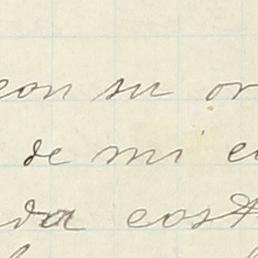 con su or
de mi e
da cost